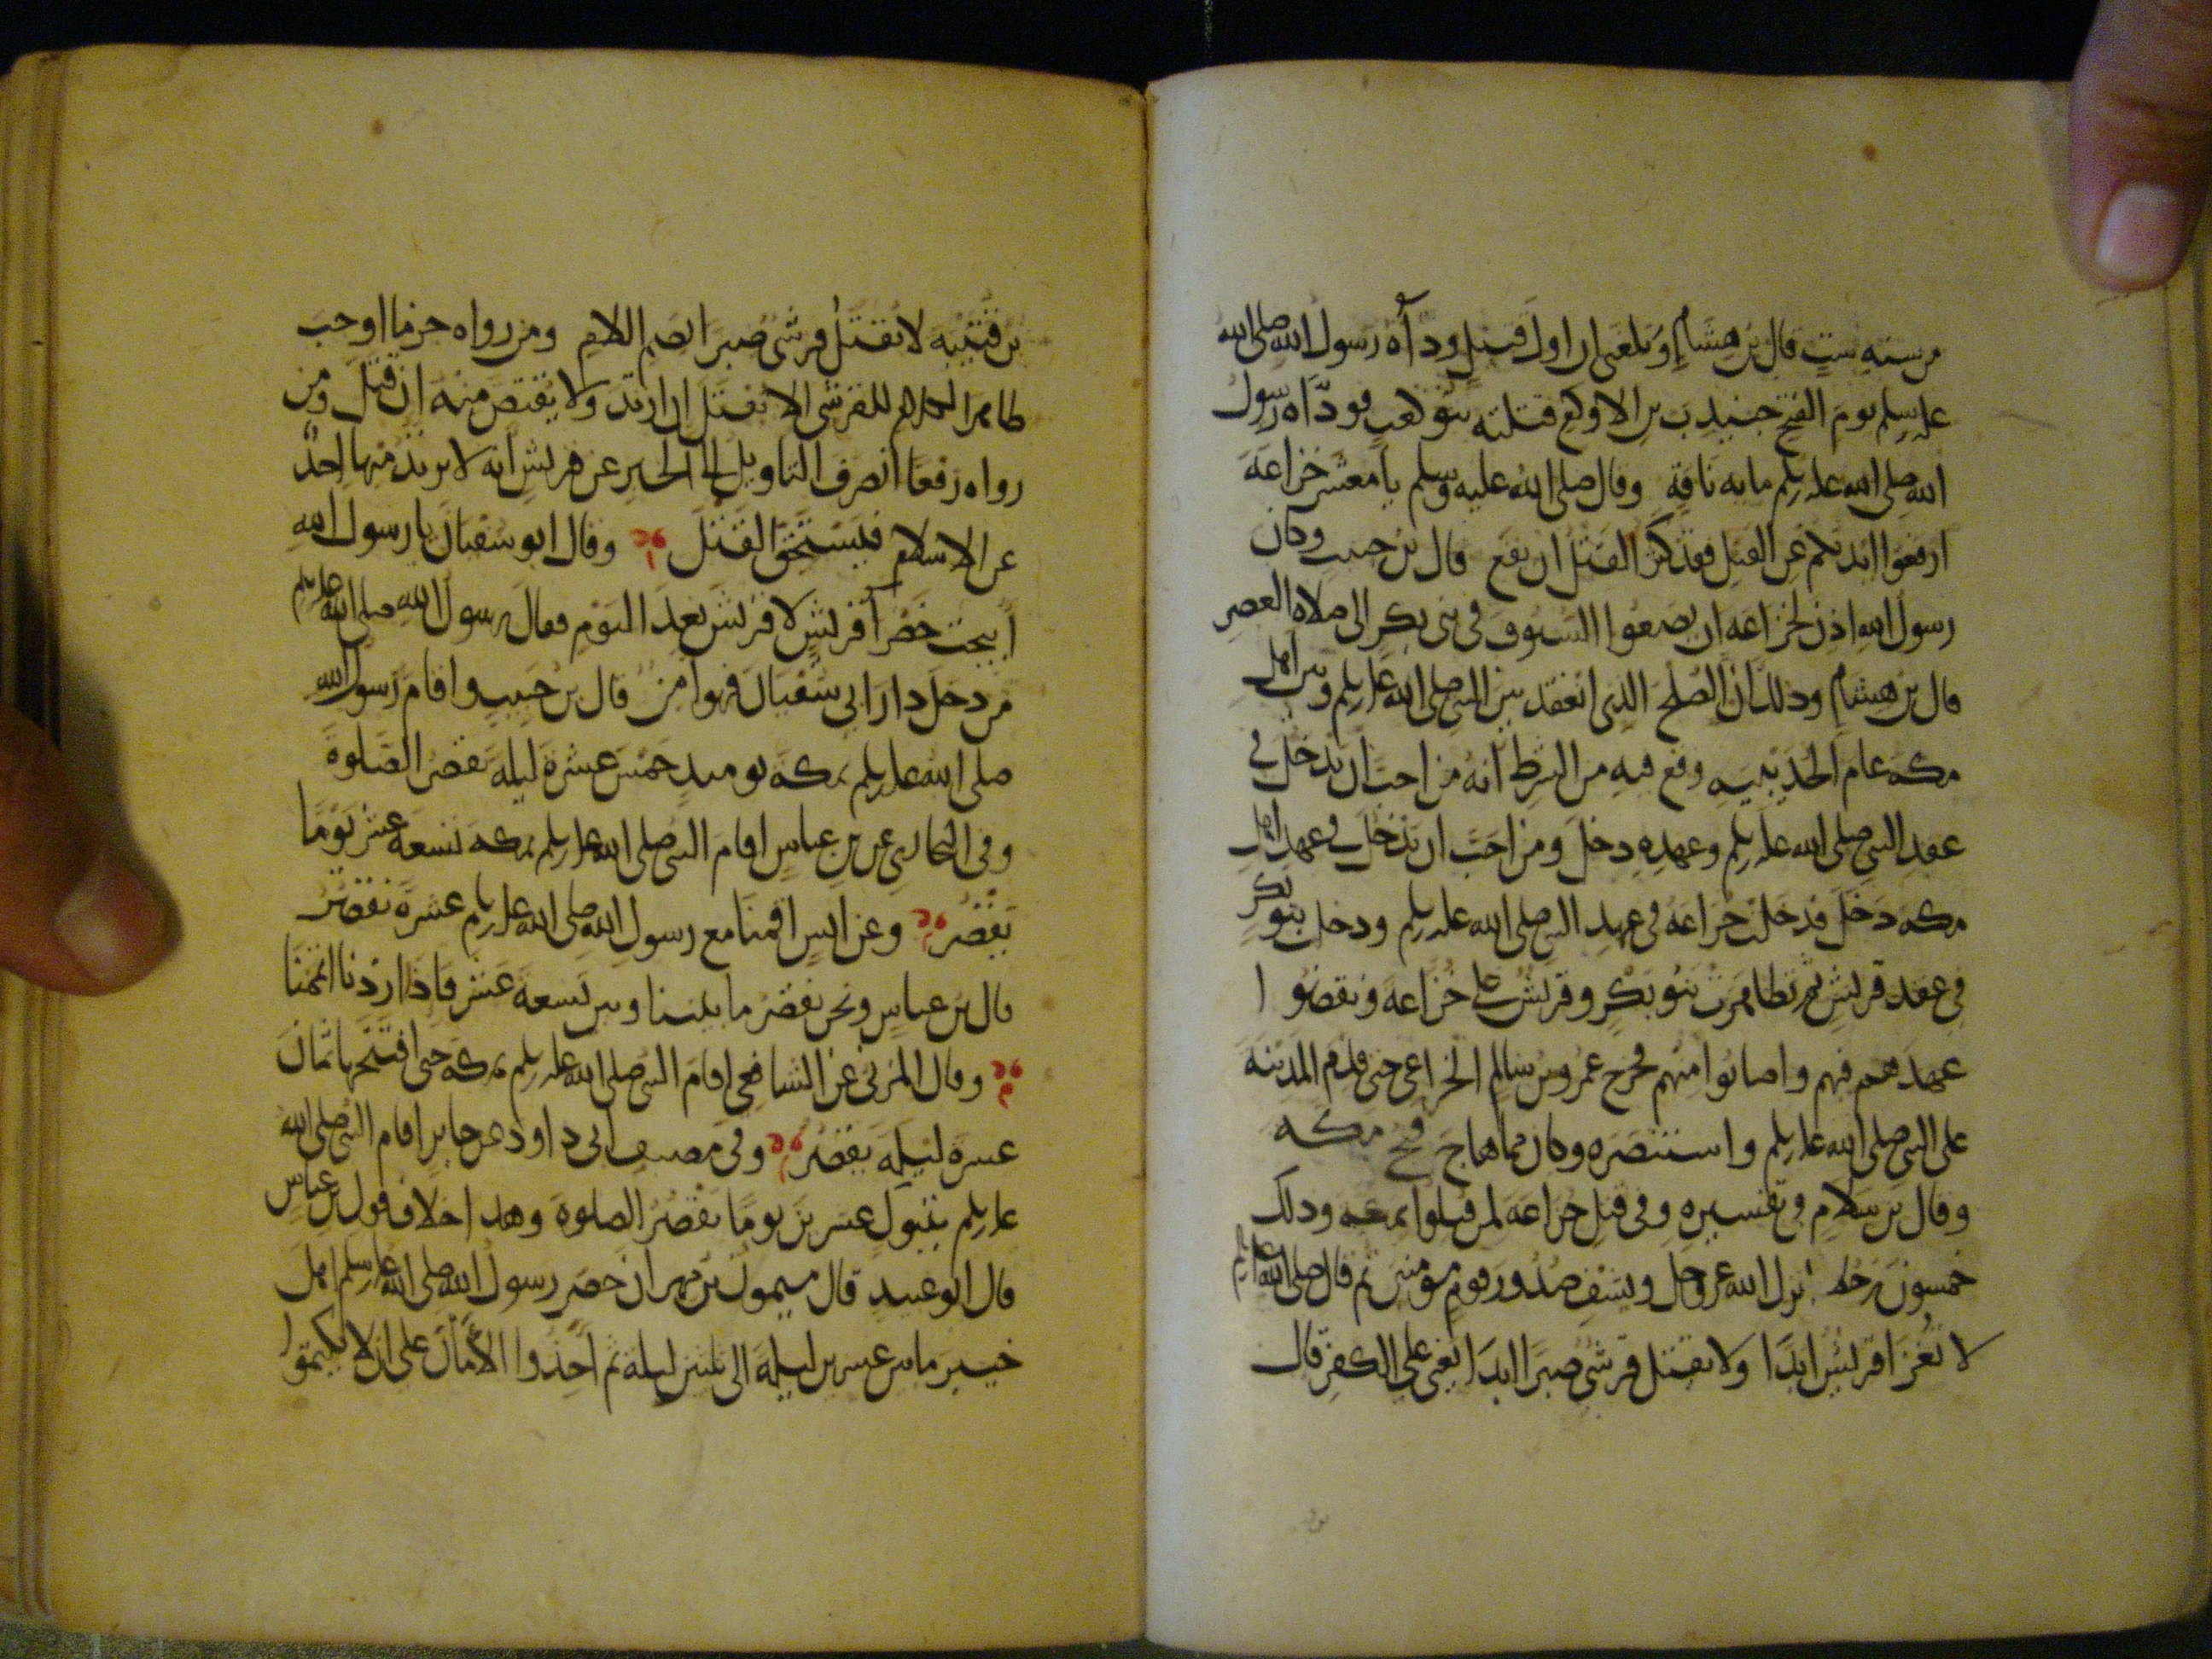 من سنه ست قال بن هشام وبلغني ان اول قتيل وداه رسول الله صلى الله
عليه وسلم يوم الفتح جنيدب بن الاكوع قتلته بنو كعب فوداه رسول
الله صلى الله عليه وسلم مايه ناقة وقال صلى الله عليه وسلم يا معشر خزاعة
ارفعوا ايديكم عن القتل فقد كثر القتل ان نفع قال بن حبيب وكان
رسول الله اذن لخزاعه ان يضعوا السيوف في بني بكر الى صلاه العصر
قال بن هشام وذلك ان الصلح الذي انعقد بين النبي صلى الله عليه وسلم وبين اهل
مكه عام الحديبيه وقع فيه من الشرط انه من احب ان يدخل في
عقد النبي صلى الله عليه وسلم وعهده دخل ومن احب ان يدخل في عهد اهل
مكه دخل فدخلت خزاعة في عهد النبي صلى الله عليه وسلم ودخل بنو بكر
في عقد قريش ثم تظاهرت بنو بكر وقريش على خزاعة ونقضوا
عهدهم فيهم واصابوا منهم فخرج عمرو بن سالم الخزاعي حتى قدم المدينه
على النبي صلى الله عليه وسلم واستنصره وكان مما هاج فتح مكه
وقال بن سلام في تفسيره وفي قتل خزاعة لمن قتلوا بمكه وذلك
خمسون رجلا نزل الله عز وجل ويشف صدور قوم مؤمنين ثم قال صلى الله عليه وسلم
لا تغزا قريش ابدا ولا يقتل قرشي صبرا ابدا يعني على الكفر قال
بن قتيبه لا يقتل قرشي صبرا بضم اللام ومن رواه جزما اوجب
ظاهر الكلام للقرشي الا يقتل ان ارتد ولا يقتص منه ان قتل ومن
رواه رفعا انصرف التاويل الى الخبر عن قريش انه لا يرتد منها احد
عن الاسلام فيستحق القتل وقال ابو سفيان يا رسول الله
ابيحت خضرا قريش لا قريش بعد اليوم فقال رسول الله صلى الله عليه وسلم
من دخل دار ابي سفيان فهو امن قال بن حبيب واقام رسول الله
صلى الله عليه وسلم بمكه يوميد خمس عشرة ليله يقصر الصلوة
وفي البخاري عن بن عباس اقام النبي صلى الله عليه وسلم بمكه تسعة عشر يوما
يقصر وعن انس اقمنا مع رسول الله صلى الله عليه وسلم عشرة نقصر
قال بن عباس ونحن نقصر ما بيننا وبين تسعة عشر فاذا زدنا اتممنا
وقال المزني عن الشافعي اقام النبي صلى الله عليه وسلم بمكة حتى افتتحها ثمان
عشرة ليلة يقصر وفي مصنف ابي داود عن جابر اقام النبي صلى الله
عليه وسلم بتبوك عشرين يوما يقصر الصلوة وهذا خلاف قول بن عباس
قال ابو عبيد قال ميمون بن مهران حصر رسول الله صلى الله عليه وسلم اهل
خيبر ما بين عشرين ليلة الى ثلثين ليلة ثم اخذوا الامان على ان لا يكتموا